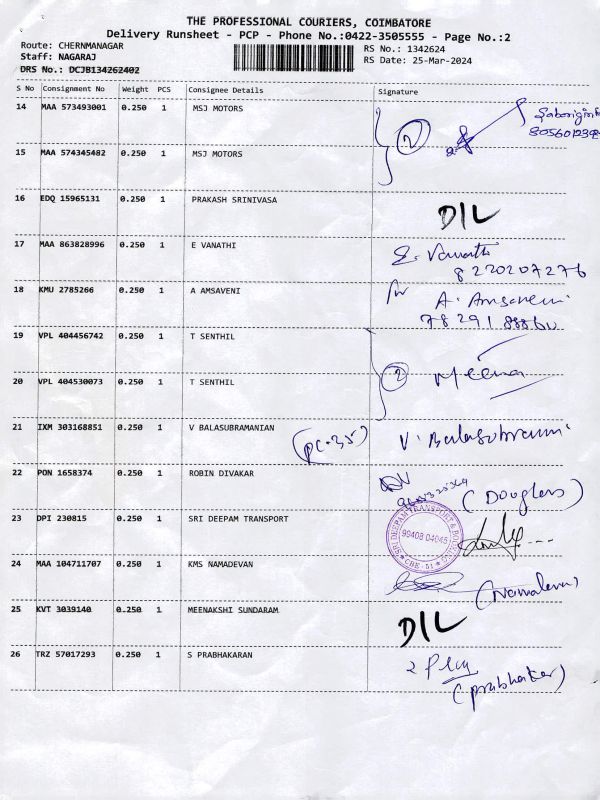 THE PROFESSIONAL COURIERS, COIMBATORE
Delivery Runsheet - PCP - Phone No.:0422-3505555 - Page No.:2
Route: CHERNMANAGAR
RS No.: 1342624
Staff: NAGARAJ
RS Date: 25-Mar-2024
DRS No.: DCJB134262402
S No Consignment No Weight PCS Consignee Details Signature
14 MAA 573493001 0.250 1 MSJ MOTORS
2
15 MAA 574345482 0.250 1 MSJ MOTORS
16 EDQ 15965131 0.250 1 PRAKASH SRINIVASA
D/L
17 MAA 863828996 0.250 1 E VANATHI
E. Vanathi
8220207276
18 KMU 2785266 0.250 1 A AMSAVENI
for A. Amsaveni
19 VPL 404456742 0.250 1 T SENTHIL
2 Meena
20 VPL 404530073 0.250 1 T SENTHIL
21 IXM 303168851 0.250 1 V BALASUBRAMANIAN
(PC-35) V. Balasubramani
22 PON 1658374 0.250 1 ROBIN DIVAKAR
(Douglas)
23 DPI 230815 0.250 1 SRI DEEPAM TRANSPORT
SRI DEEPAM TRANSPORT &
99408 04045
CBE - 51
24 MAA 104711707 0.250 1 KMS NAMADEVAN
25 KVT 3039140 0.250 1 MEENAKSHI SUNDARAM
D/L
26 TRZ 57017293 0.250 1 S PRABHAKARAN
(prabhakar)